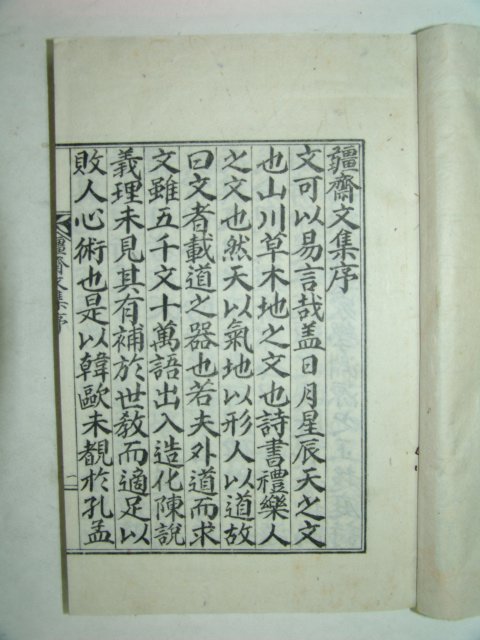 疆齋文集序
文可以易言哉盖日月星辰天之文
也山川草木地之文也詩書禮樂人
之文也然天以氣地以形人以道故
曰文者載道之器也若夫外道而求
文雖五千文十萬語出入造化陳說
義理未見其有補於世敎而適足以
敗人心術也是以韓歐未覩於孔孟
疆齋文集序